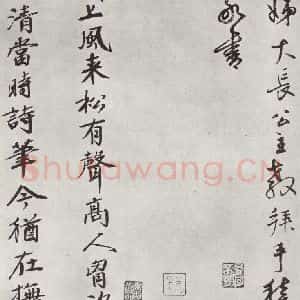 娣大長公主教拜手稽
敬書
上風来松有聲高人留
清當時詩筆今猶在撫
Shufawang.CN